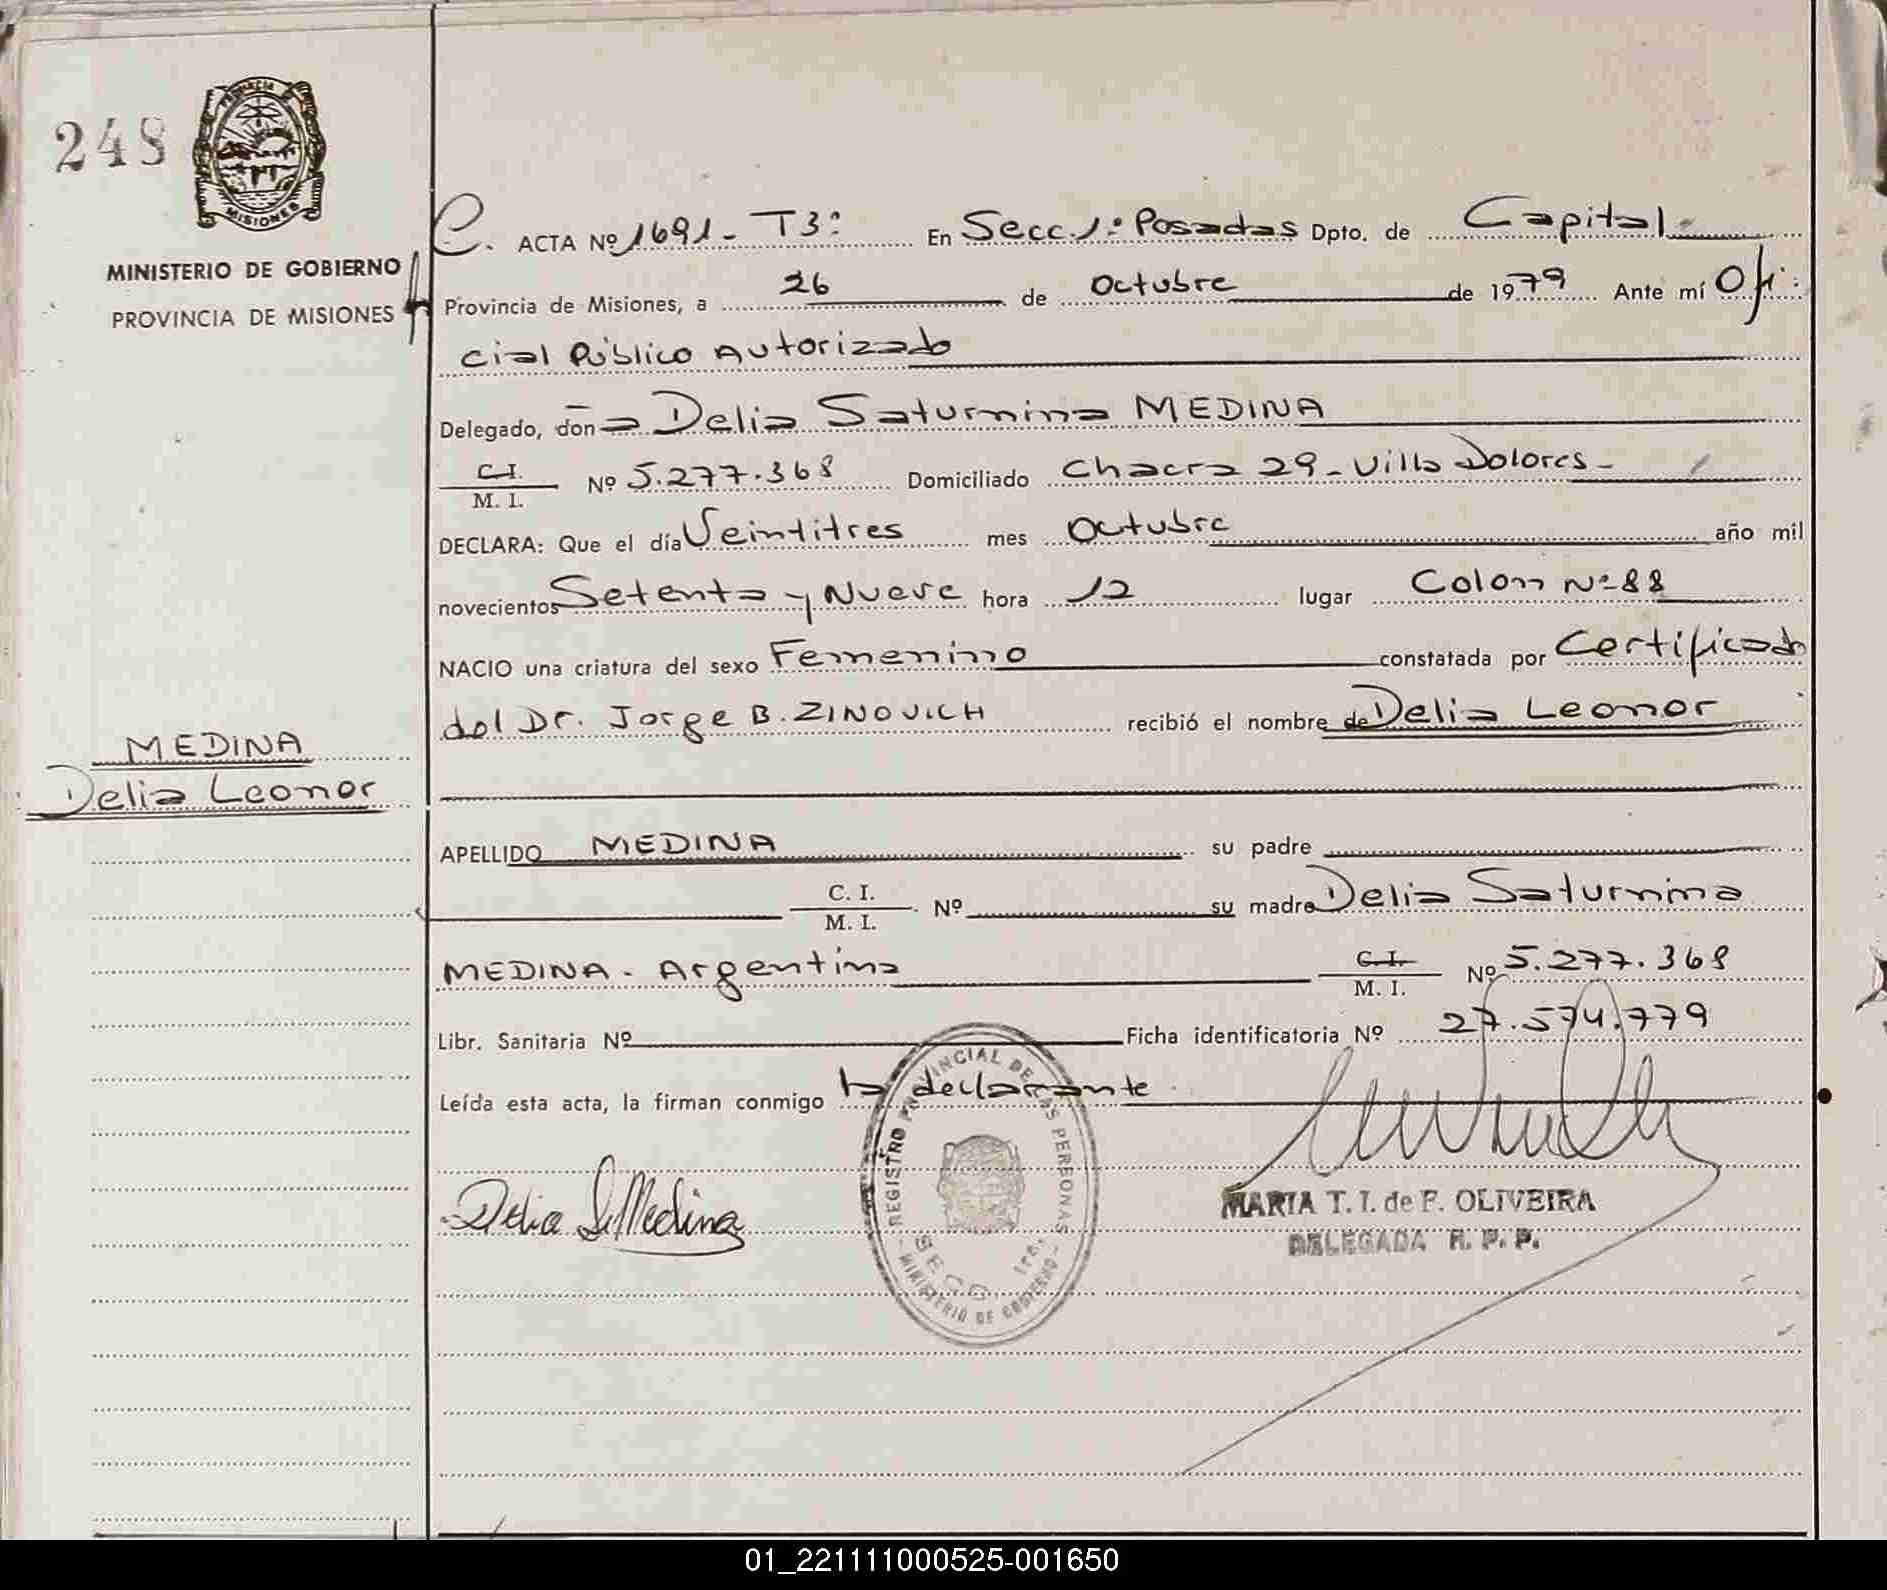 248
PROVINCIA DE
MISIONES
MINISTERIO DE GOBIERNO
PROVINCIA DE MISIONES
MEDINA
Delia Leonor
C. ACTA Nº 1691 - T3: En Secc. 1º Posadas Dpto. de Capital
Provincia de Misiones, a 26 de Octubre de 1979 Ante mí Ofi-
cial Público Autorizado
Delegado, doña Delia Saturnina MEDINA
C.I.
M. I. Nº 5.277.368 Domiciliado Chacra 29 - Villa Dolores -
DECLARA: Que el día Veintitres mes Octubre año mil
novecientos Setenta y Nueve hora 12 lugar Colon Nº 88
NACIO una criatura del sexo Femenino constatada por Certificado
del Dr. Jorge B. ZINOVICH recibió el nombre de Delia Leonor
APELLIDO MEDINA su padre
C. I.
M. I. Nº su madre Delia Saturnina
MEDINA - Argentina C.I.
M. I. Nº 5.277.368
Libr. Sanitaria Nº Ficha identificatoria Nº 27.574.779
Leída esta acta, la firman conmigo la declarante
Delia S. Medina
REGISTRO PROVINCIAL DE LAS PERSONAS
SECC. 1ra.
MINISTERIO DE GOBIERNO
MARIA T. I. de F. OLIVEIRA
DELEGADA R. P. P.
01_221111000525-001650